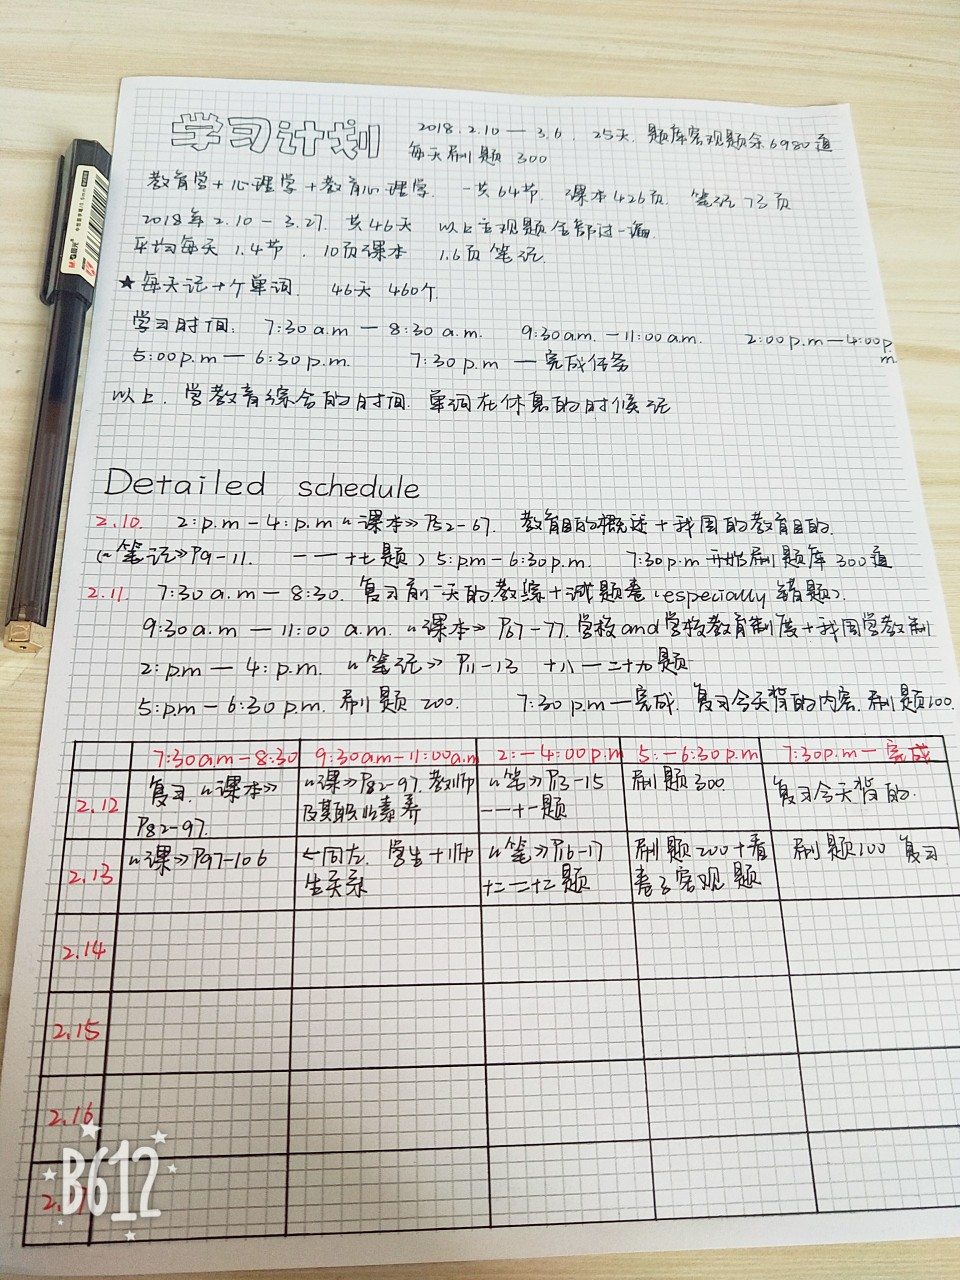 学习计划
2018.2.10 — 3.6. 25天. 题库客观题余6980道
每天刷题 300
教育学+心理学+教育心理学. 一共64节. 课本426页. 笔记73页
2018年2.10 — 3.27. 共46天 以上主观题全部过一遍.
平均每天 1.4节. 10页课本 1.6页笔记.
★每天记十个单词. 46天 460个.
学习时间: 7:30 a.m — 8:30 a.m. 9:30 a.m. — 11:00 a.m. 2:00 p.m — 4:00 p.m
5:00 p.m — 6:30 p.m. 7:30 p.m — 完成任务
以上. 学教育综合的时间. 单词在休息的时候记
Detailed schedule
2.10. 2:p.m — 4:p.m《课本》P52-67. 教育目的概述+我国的教育目的.
(《笔记》P9-11. 一 — 十七题) 5:pm — 6:30 p.m. 7:30 p.m 开始刷题库 300道
2.11. 7:30 a.m — 8:30. 复习前一天的教综+试题卷(especially 错题).
9:30 a.m. — 11:00 a.m.《课本》P67-77. 学校and学校教育制度+我国学教制
2:pm — 4:p.m.《笔记》P11-13 十八 — 二十九题
5:p.m — 6:30 p.m. 刷题 200. 7:30 p.m — 完成. 复习今天背的内容. 刷题100.
7:30am-8:30 9:30am-11:00am 2:-4:00p.m 5:-6:30p.m 7:30p.m — 完成
2.12 复习.《课本》P82-97. 《课》P82-97. 教师及其职业素养 《笔》P13-15 一 — 十一题 刷题300. 复习今天背的.
2.13 《课》P97-106 ←同左. 学生+师生关系 《笔》P16-17 十二 — 十二题 刷题200+看客观题 刷题100 复习
2.14
2.15
2.16
B612